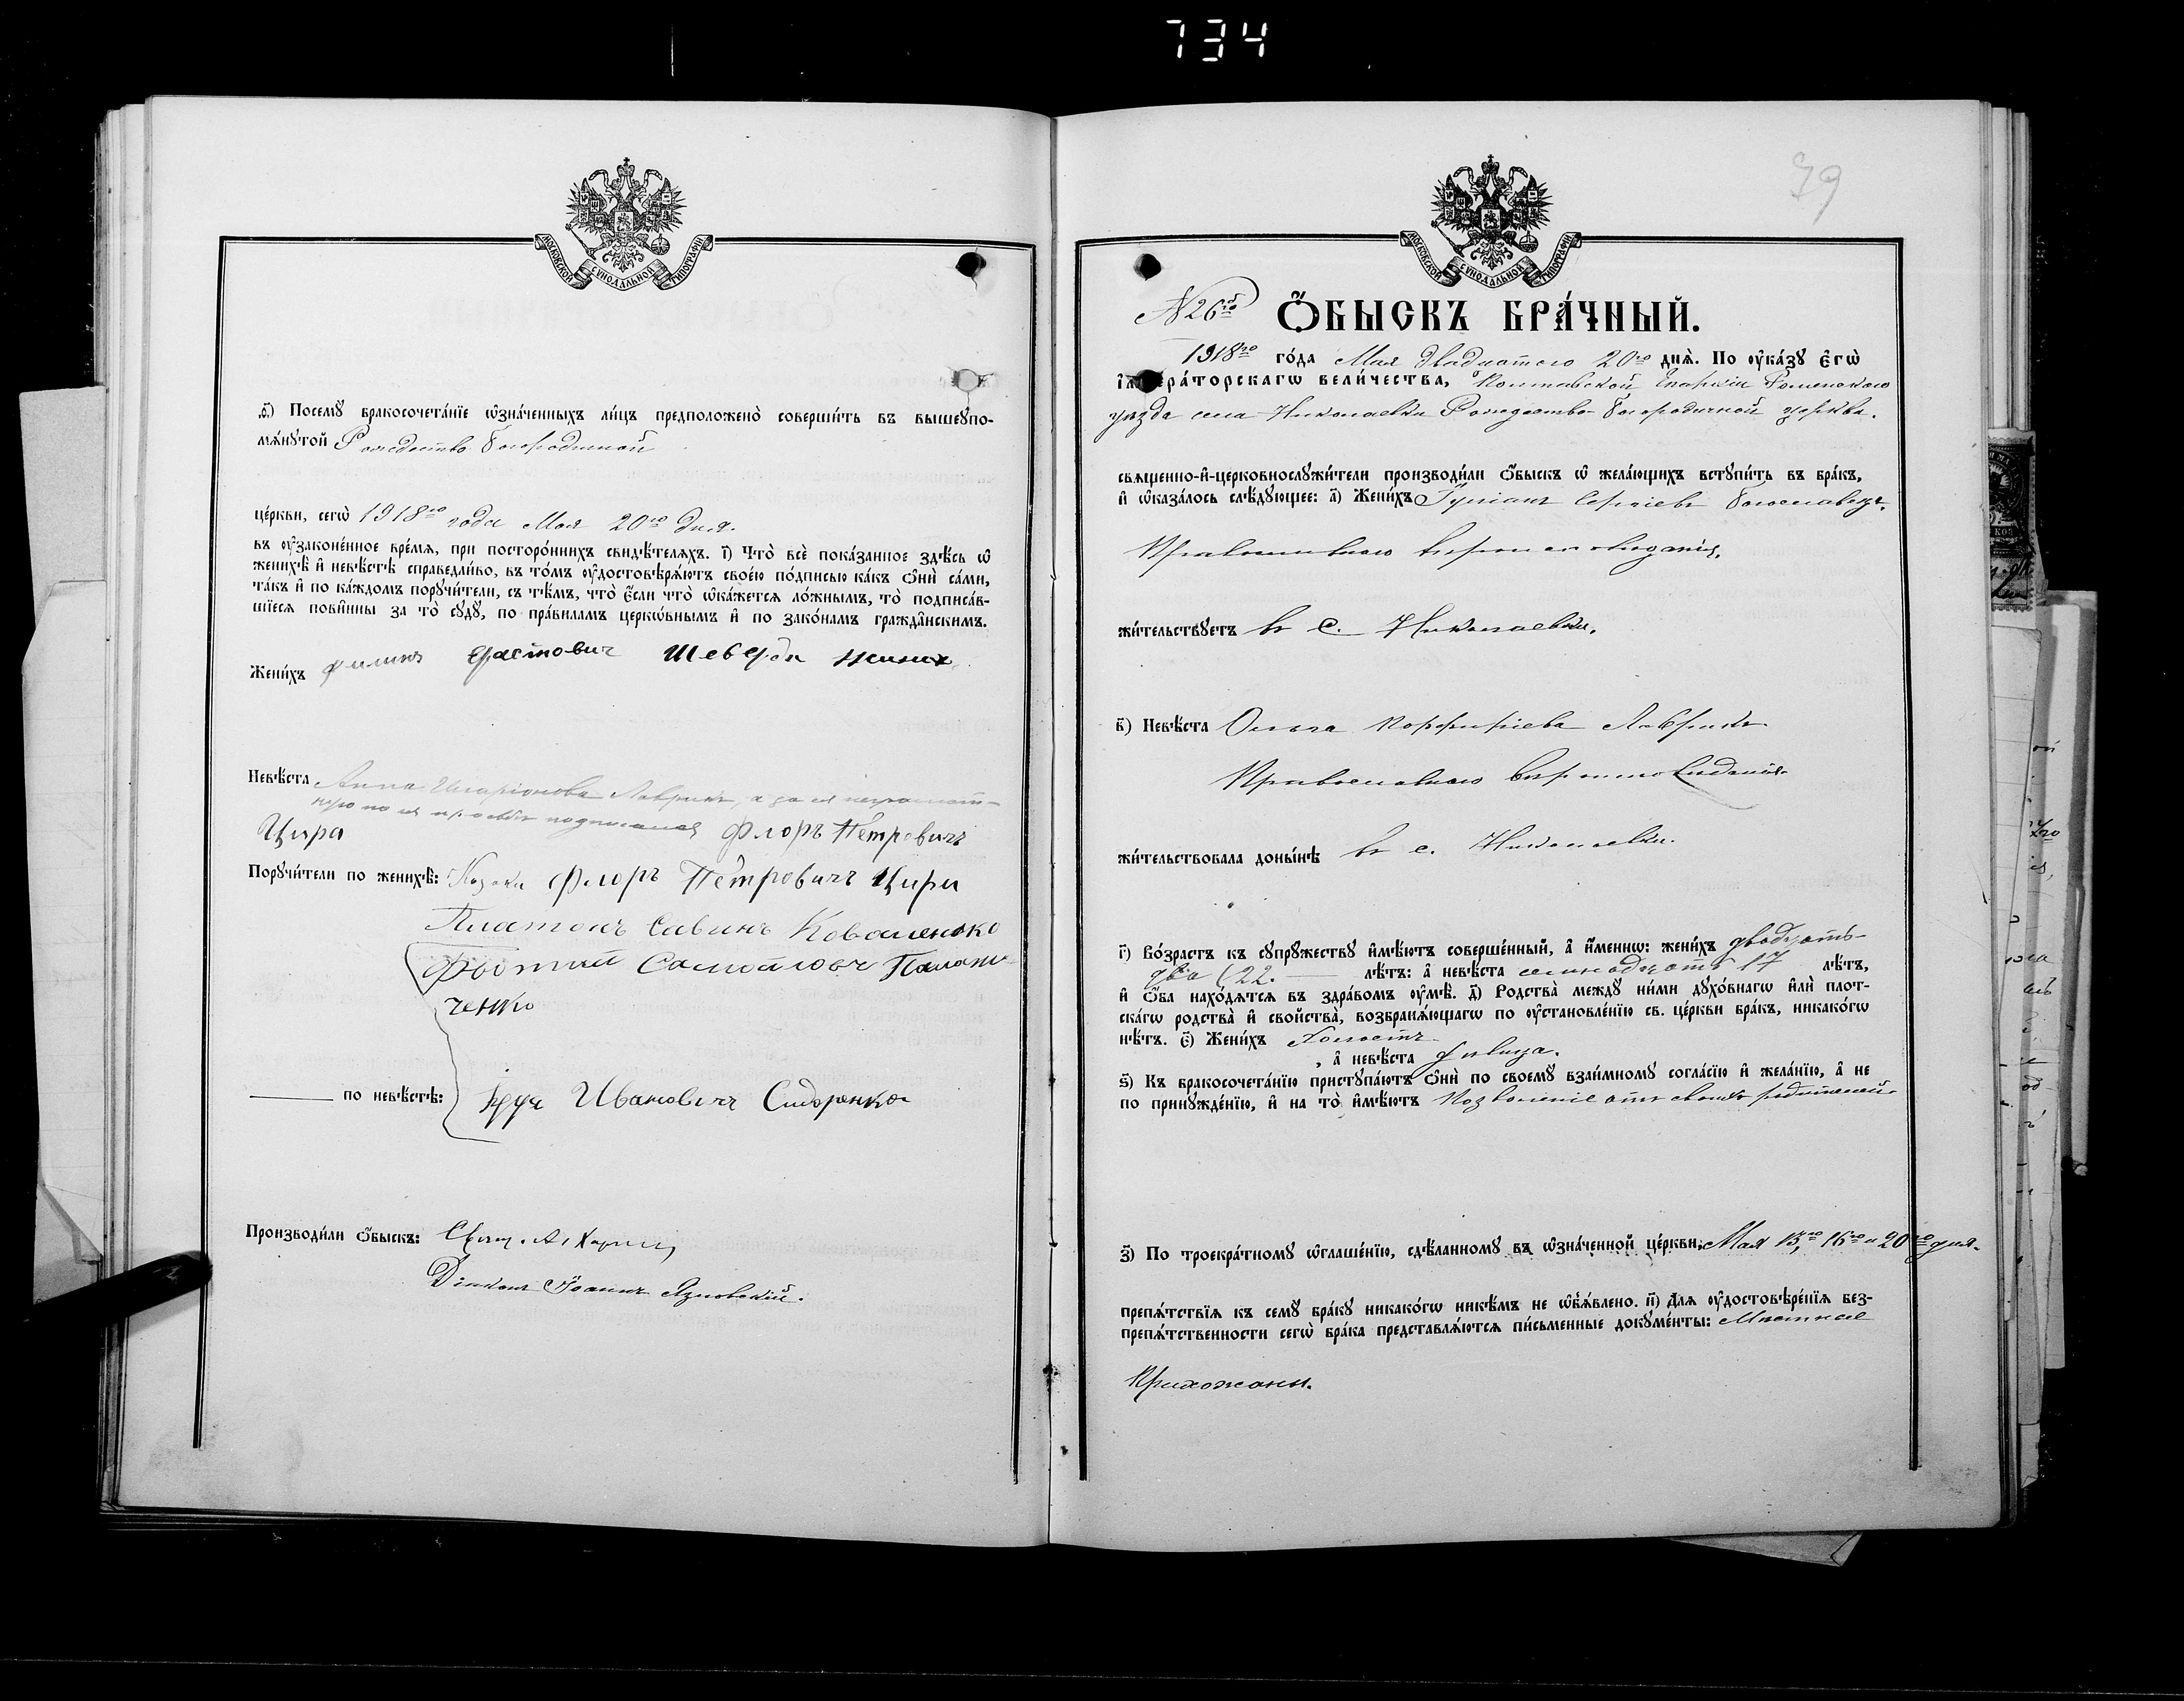 734
МОСКОВСКОЙ СУНОДАЛЬНОЙ ТИПОГРАФІИ
ѳ҃) Посемꙋ̀ бракосочета́нїе ѡ҆зна́ченныхъ ли́цъ предположено̀ соверши́ть въ вышеꙋпо-
мѧ́нꙋтой Рождество Богородичной
це́ркви, сегѡ̀ 1918го года Мая 20го дня.
въ ᲂу҆зако́ненное вре́мѧ, при посторо́ннихъ свидѣ́телѧхъ. і҃) Что̀ всѐ пока́занное здѣ́сь ѡ҆
женихѣ̀ и҆ невѣ́стѣ справедли́во, въ то́мъ ᲂу҆достовѣрѧ́ютъ свое́ю по́дписью ка́къ ѻ҆нѝ са́ми,
та́къ и҆ по ка́ждомъ порꙋчи́тели, съ тѣ́мъ, что̀ є҆́сли что̀ ѡ҆ка́жетсѧ ло́жнымъ, то̀ подписа́в-
шїесѧ пови́нны за то̀ сꙋдꙋ̀, по пра́виламъ церкѡ́внымъ и҆ по зако́намъ гражда́нскимъ.
Жени́хъ Филипъ Ерастович Шеверда жених
Невѣ́ста Анна Иларіонова Лаврикъ, а за ея неграмот-
ную по ея просьбѣ подписался Флоръ Петровичъ
Цира
Порꙋчи́тели по женихѣ̀: Козаки Флоръ Петровичъ Цира
Платонъ Савинъ Коваленько
Фотий Самойлович
ченко
по невѣ́стѣ: Иванович Сидоренко
Производи́ли ѻ҆́быскъ: Свящ. А.
Діаконъ Іоаннъ Язловскій.
79
МОСКОВСКОЙ СУНОДАЛЬНОЙ ТИПОГРАФІИ
N 26й Ѻ҆́БЫСКЪ БРА́ЧНЫЙ.
1918го го́да Мая двадцатого 20го днѧ̀. По ᲂу҆ка́зꙋ є҆гѡ̀
і҆мпера́торскагѡ вели́чества, Полтавской Епархіи Роменского
уѣзда села Николаевки Рождество-Богородичной церкви.
свѧщенно-и҆-церковнослꙋжи́тели производи́ли ѻ҆́быскъ ѡ҆ жела́ющихъ встꙋпи́ть въ бра́къ,
и҆ ѡ҆каза́лось слѣ́дꙋющее: а҃) Жени́хъ Гуріанъ Сергіевъ
Православного вѣроисповѣданія,
жи́тельствꙋетъ въ с. Николаевкѣ.
в҃) Невѣ́ста Ольга Порфиріева Лаврикъ
Православного вѣроисповѣданія
жи́тельствовала доны́нѣ въ с. Николаевки.
г҃) Во́зрастъ къ сꙋпрꙋ́жествꙋ и҆мѣ́ютъ соверше́нный, а҆ и҆́меннѡ: жени́хъ двадцать
два (22. лѣ́тъ: а҆ невѣ́ста семнадцать 17 лѣ́тъ,
и҆ ѻ҆́ба нахо́дѧтсѧ въ здра́вомъ ᲂу҆мѣ̀. д҃) Родства̀ междꙋ̀ ни́ми дꙋхо́внагѡ и҆лѝ плот-
ска́гѡ родства̀ и҆ сво́йства̀, возбранѧ́ющагѡ по ᲂу҆становле́нїю св. це́ркви бра́къ, никако́гѡ
нѣ́тъ. є҃) Жени́хъ Холостъ
, а҆ невѣ́ста дѣвица.
ѕ҃) Къ бракосочета́нїю пристꙋпа́ютъ ѻ҆нѝ по своемꙋ̀ взаи́мномꙋ согла́сїю и҆ жела́нїю, а҆ не
по принꙋжде́нїю, и҆ на то̀ и҆мѣ́ютъ Позволеніе отъ своихъ родителей
з҃) По троекра́тномꙋ ѡ҆глаше́нїю, сдѣ́ланномꙋ въ ѡ҆зна́ченной це́ркви, Мая 13го, 16го и 20го дня.
препѧ́тствїѧ къ семꙋ̀ бра́кꙋ никако́гѡ никѣ́мъ не ѡ҆б̾ѧ́влено. и҃) Длѧ ᲂу҆достовѣре́нїѧ без-
препѧ́тственности сегѡ̀ бра́ка представлѧ́ютсѧ пи́сьменные докꙋме́нты: Мѣстные
Прихожаны.